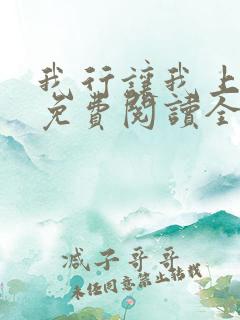 我行讓我上
免費閱讀全
减子哥哥
未经同意禁止转载